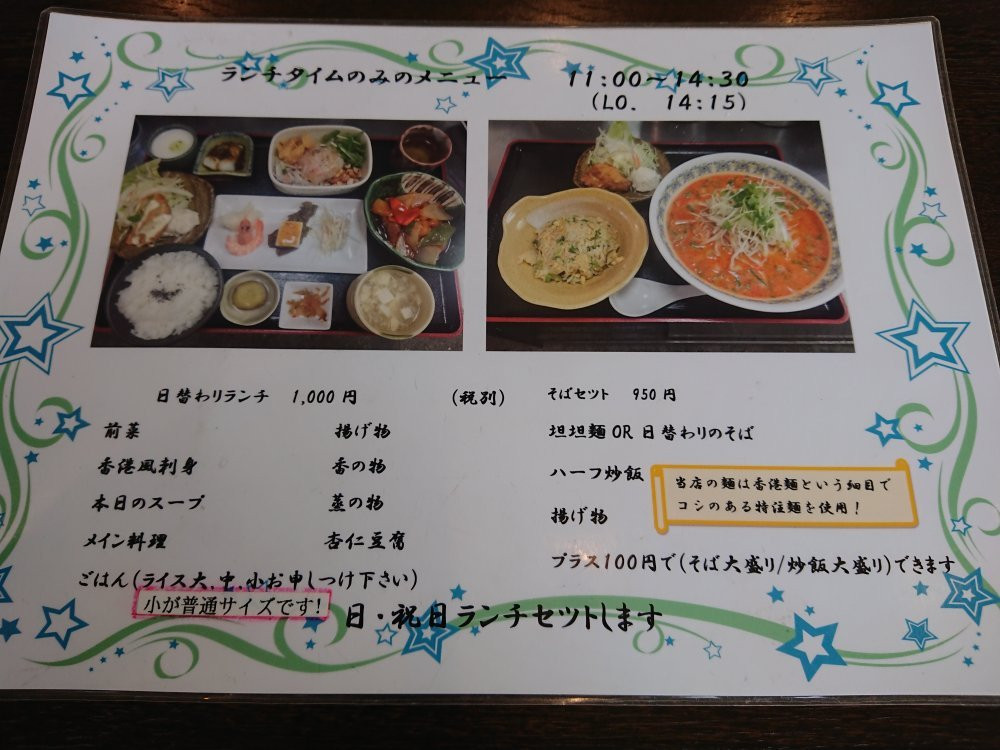 ランチタイムのみのメニュー 11:00～14:30
(LO. 14:15)
日替わりランチ 1,000円 (税別)
前菜 揚げ物
香港風刺身 香の物
本日のスープ 蒸の物
メイン料理 杏仁豆腐
ごはん(ライス大,中,小お申しつけ下さい)
小が普通サイズです!
そばセツト 950円
坦坦麺OR日替わりのそば
ハーフ炒飯
揚げ物
当店の麺は香港麺という細目で
コシのある特注麺を使用!
プラス100円で(そば大盛り/炒飯大盛り)できます
日・祝日ランチセツトします